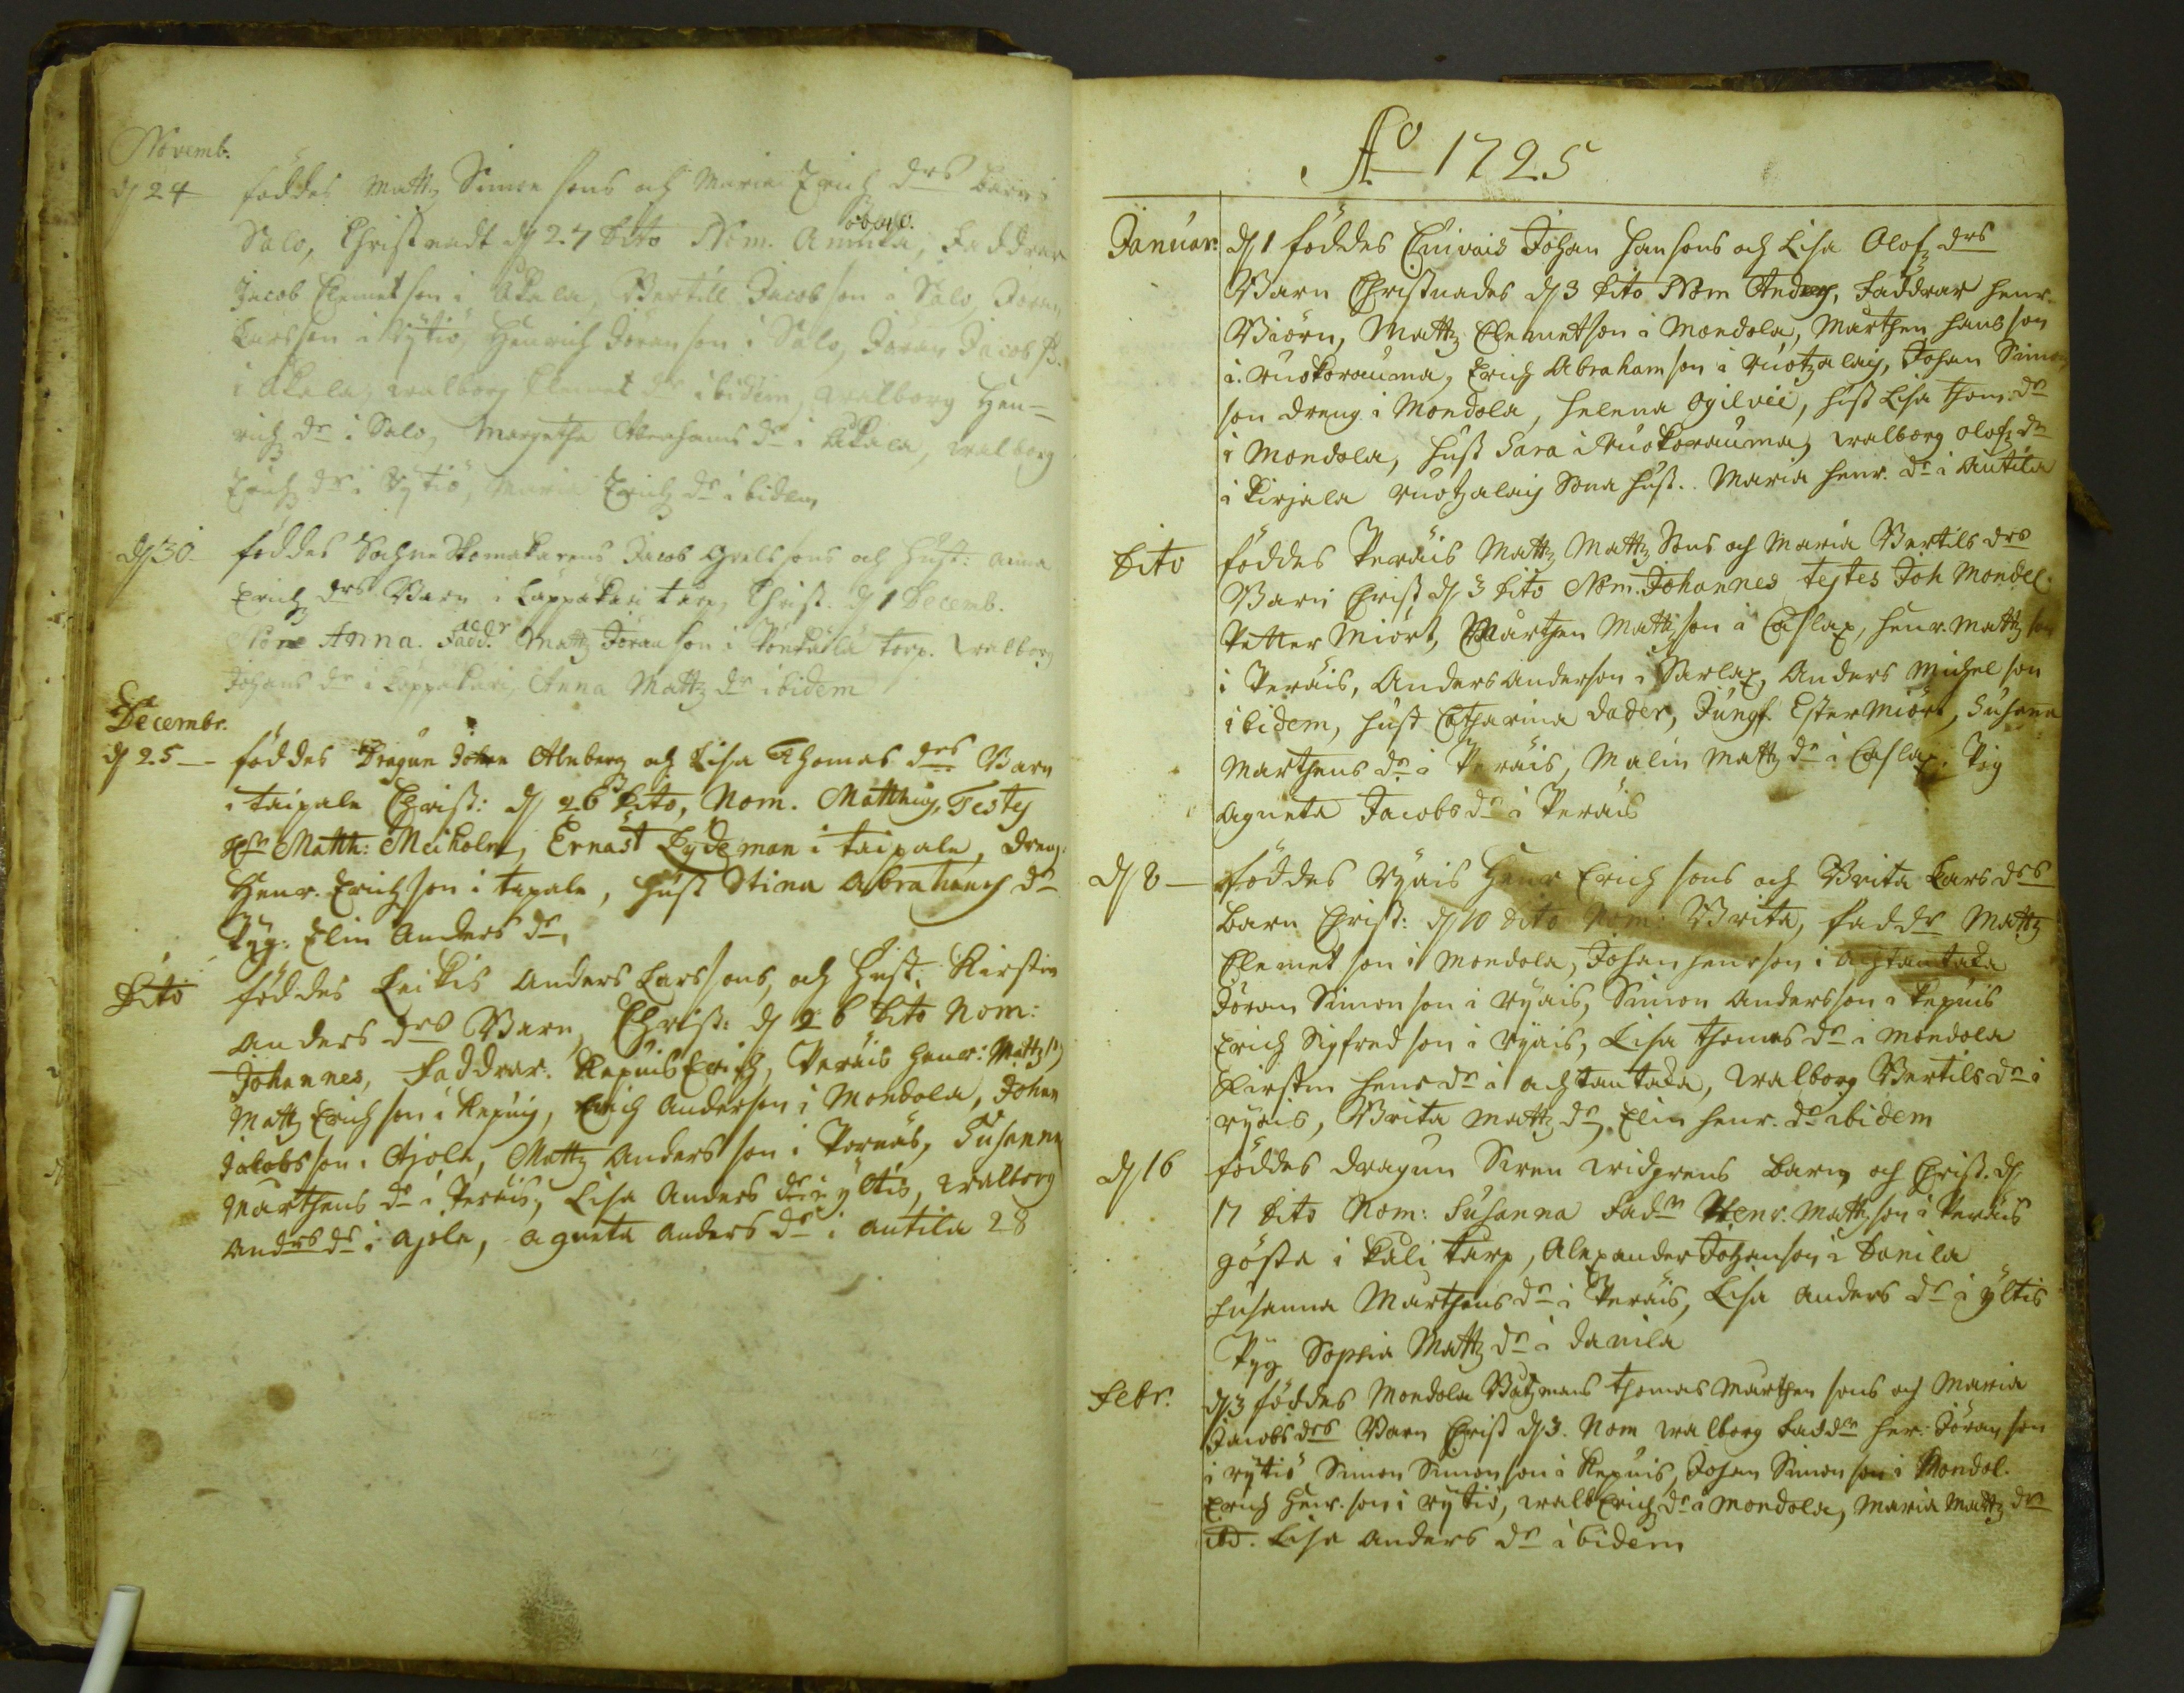 Novemb.
dj 24 föddes Mattz Simon sons och Maria Erich drs barn i
Salo, Christnadt dj 27 dito Nom. Annika, Faddrar
Jacob Clemet son i Akala, Bertill Jacob son i Salo, Jöran
Larsson i Rytiö, Henrich Jöran son i Salo, Jöran Jacobs.
i Akala, Walborg Clemet dr ibidem, Walborg Hen=
rich dr i Salo, Margetha Abrahams dr i Akala, Walborg
Erich dr i Rytiö, Maria Erich dr ibidem
dj 30 föddes Sochne Skomakarens Jacob Grels sons och Hust: Anna
Erich drs Barn i Lappakari tarp, Christ. dj 1 Decemb.
Nom Anna. Fadd. Mattz Jöran son i torp. Walborg
Johans dr i Lappakari, Anna Mattz dr ibidem
Decembr.
dj 25 — föddes Dragun Johan Alnberg och Lisa Thomas drs Barn
i taipale Christ: dj 26 dito, Nom. Matthias, Testes
Hr Matth: Meiholm, Ernast Lydeman i taipale, dreng:
Henr. Erich son i tapale, Hust Stina Abrahams dr
Pyg: Elin Anders dr,
Dito föddes Leikis Anders Larssons, och Hust. Kirstin
Anders drs Barn, Christ: dj 26 dito Nom:
Johannes, Faddrar. Kepuis Erich, Peräis Henr: Mattz
Mattz Erich son i Kepuis, Erich Anderson i Mondola, Johan
Jakobs son i Ajola, Mattz Anders son i Pornäs, Susanna
Marthens dr i Peräis, Lisa Anders dr i yltis, Walborg
Andrs dr i Ajola, Agneta Anders dr i Antila 28
Ao 1725
Januar: dj 1 föddes Cuivais Johan Hansons och Lisa Olofz drs
Barn Christnades dj 3 dito Nom Anders, Faddrar Henr.
Biörn, Mattz Clemetson i Mondola, Marthen Hans son
i Ruokorauma, Erich Abraham son i Ruotzalais, Johan Simon
son dreng i Mondola, Helena Ogilvie, Hust Lisa Thom: dr
i Mondola, Hust Sara i Ruokorauma, Walborg Olofz dr
i Kirjala Ruotzalais Sona Hust. Maria Henr. dr i Antila
Dito föddes Peräis Mattz Mattz Sons och Maria Bertils drs
Barn Christ dj 3 dito Nom. Johannes testes Joh Mondel.
Petter Miört, Marthen Mattzson i Caslax, Henr. Mattz son
i Peräis, Anders Anderson i Sarlax, Anders Michel son
ibidem, Hust Catharina dader, Jungf. Ester Miört, Susana
Marthens dr i Peräis, Malin Mattz dr i Caslax. Pig
Agneta Jacobs dr i Peräis
dj 8 — föddes Ryäis Henr Erich sons och Brita Lars drs
barn Christ: dj 10 dito Nom: Brita, Faddr Mattz
Clemet son i Mondola, Johan Henrson i Achtantaka
Jöran Simon son i Ryäis, Simon Andersson i Kepuis
Erich Sigfred son i Ryäis, Lisa Thomas dr i Mondola
Kirstin Henr dr i Achtantaka, Walborg Bertils dr i
Ryäis, Brita Mattz dr, Elin Henr. dr ibidem
dj 16 föddes dragun Sven Widgrens barn och Christ. dj
17 dito Nom: Susanna Fadr Henr. Mattz son i Peräis
Gösta i Kali tarp, Alexander Johanson i Danila
Susanna Marthens dr i Peräis, Lisa Anders dr i yltis
Pyg Sophia Mattz dr i Danila
Febr. dj 3 föddes Mondola Båtzmans Thomas Marthen sons och Maria
Jacobs drs Barn Christ dj 3. Nom Walborg Faddr Her: Jöran son
i Rytiö Simon Simon son i Kepuis, Johan Simon son i Mondol.
Erich Henr. son i Rytiö, Walb Erich dr i Mondola, Maria Mattz dr
Ibd. Lisa Anders dr ibidem